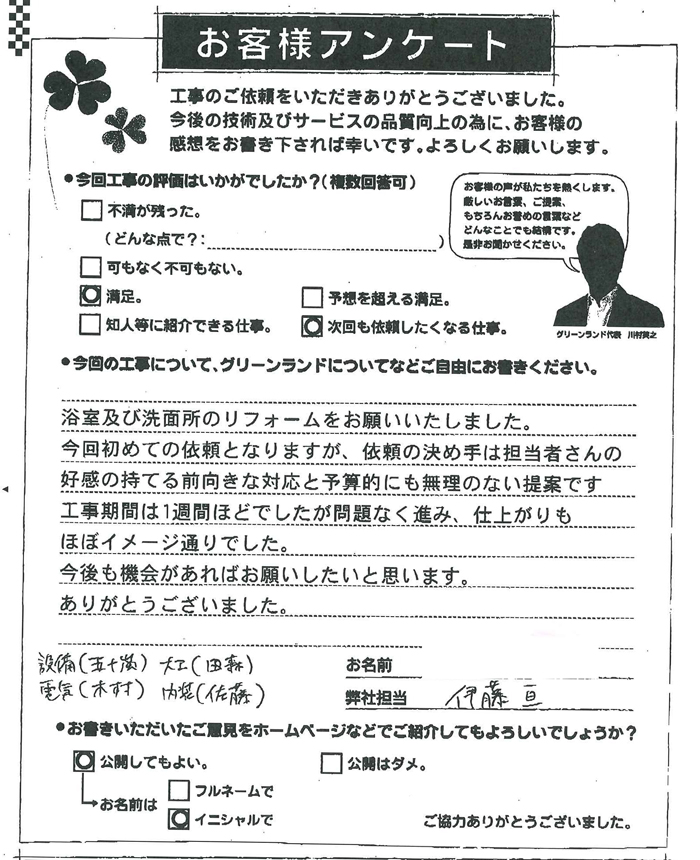 お客様アンケート
工事のご依頼をいただきありがとうございました。
今後の技術及びサービスの品質向上の為に、お客様の
感想をお書き下されば幸いです。よろしくお願いします。
●今回工事の評価はいかがでしたか?(複数回答可)
不満が残った。
(どんな点で?: )
可もなく不可もない。
満足。
予想を超える満足。
知人等に紹介できる仕事。
次回も依頼したくなる仕事。
お客様の声が私たちを熱くします。
厳しいお言葉、ご提案、
もちろんお誉めの言葉など
どんなことでも結構です。
是非お聞かせください。
グリーンランド代表 川村
●今回の工事について、グリーンランドについてなどご自由にお書きください。
浴室及び洗面所のリフォームをお願いいたしました。
今回初めての依頼となりますが、依頼の決め手は担当者さんの
好感の持てる前向きな対応と予算的にも無理のない提案です
工事期間は1週間ほどでしたが問題なく進み、仕上がりも
ほぼイメージ通りでした。
今後も機会があればお願いしたいと思います。
ありがとうございました。
設備(五十嵐) 大工(田森)
電気(木村) 内装(佐藤)
お名前
弊社担当 伊藤 亘
●お書きいただいたご意見をホームページなどでご紹介してもよろしいでしょうか?
公開してもよい。
公開はダメ。
お名前は
フルネームで
イニシャルで
ご協力ありがとうございました。